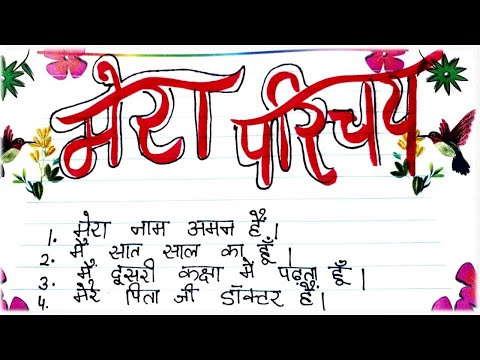 मेरा परिचय
1. मेरा नाम अमन है।
2. मैं सात साल का हूँ।
3. मैं दूसरी कक्षा में पढ़ता हूँ।
4. मेरे पिता जी डॉक्टर हैं।